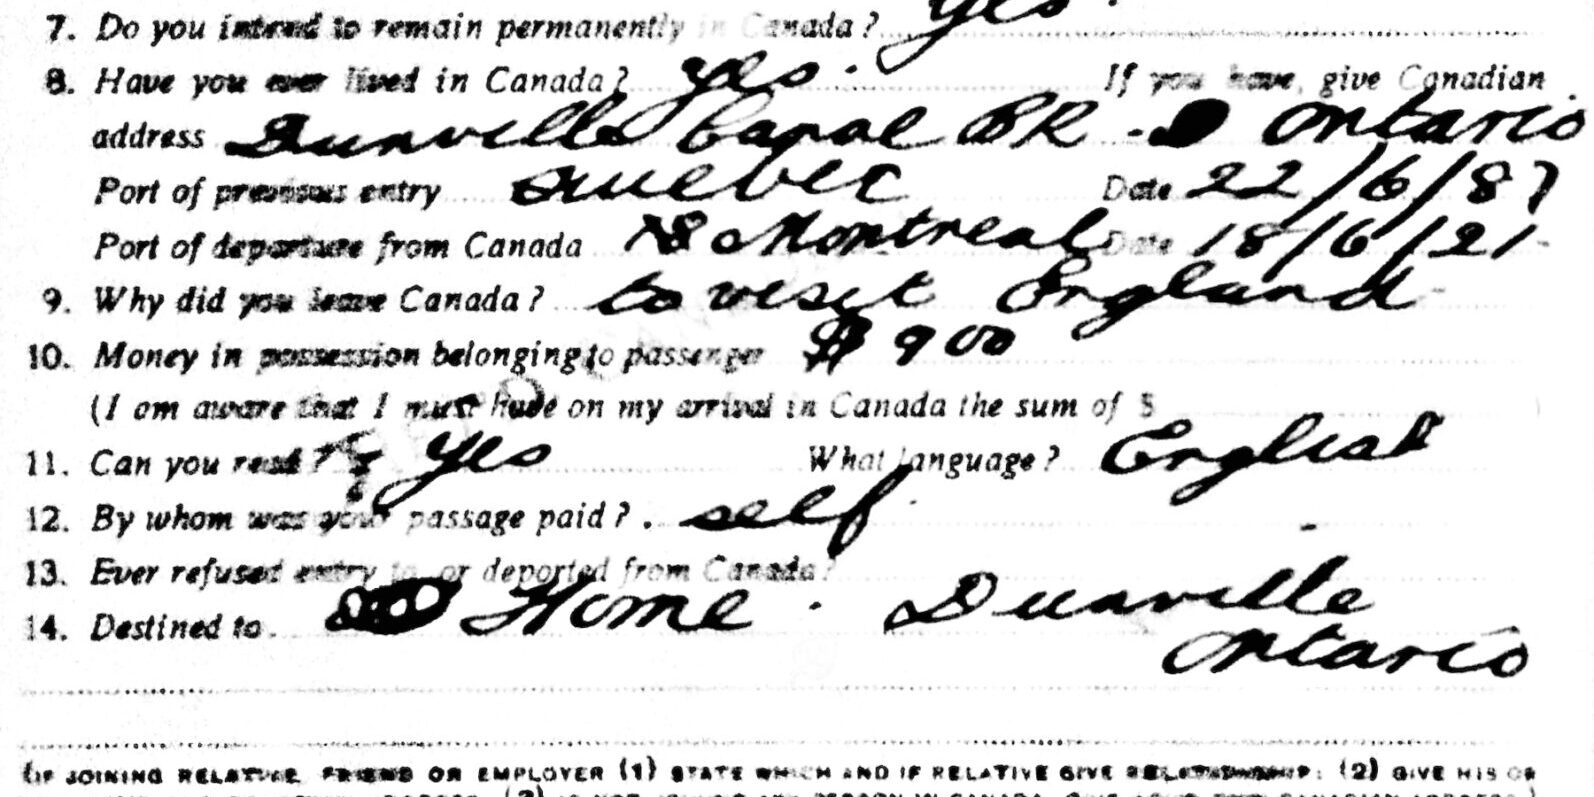 7. Do you intend to remain permanently in Canada? yes.
8. Have you ever lived in Canada? yes. If you have, give Canadian
address Dunville Canal BR - Ontario
Port of previous entry Quebec Date 22/6/87
Port of departure from Canada Montreal Date 18/6/21
9. Why did you leave Canada? to visit England
10. Money in possession belonging to passenger $ 900
(I am aware that I must have on my arrival in Canada the sum of $ )
11. Can you read? yes What language? English
12. By whom was your passage paid? self
13. Ever refused entry to, or deported from Canada? -
14. Destined to Home. Dunville
Ontario
(IF JOINING RELATIVE, FRIEND OR EMPLOYER (1) STATE WHICH AND IF RELATIVE GIVE RELATIONSHIP: (2) GIVE HIS OR